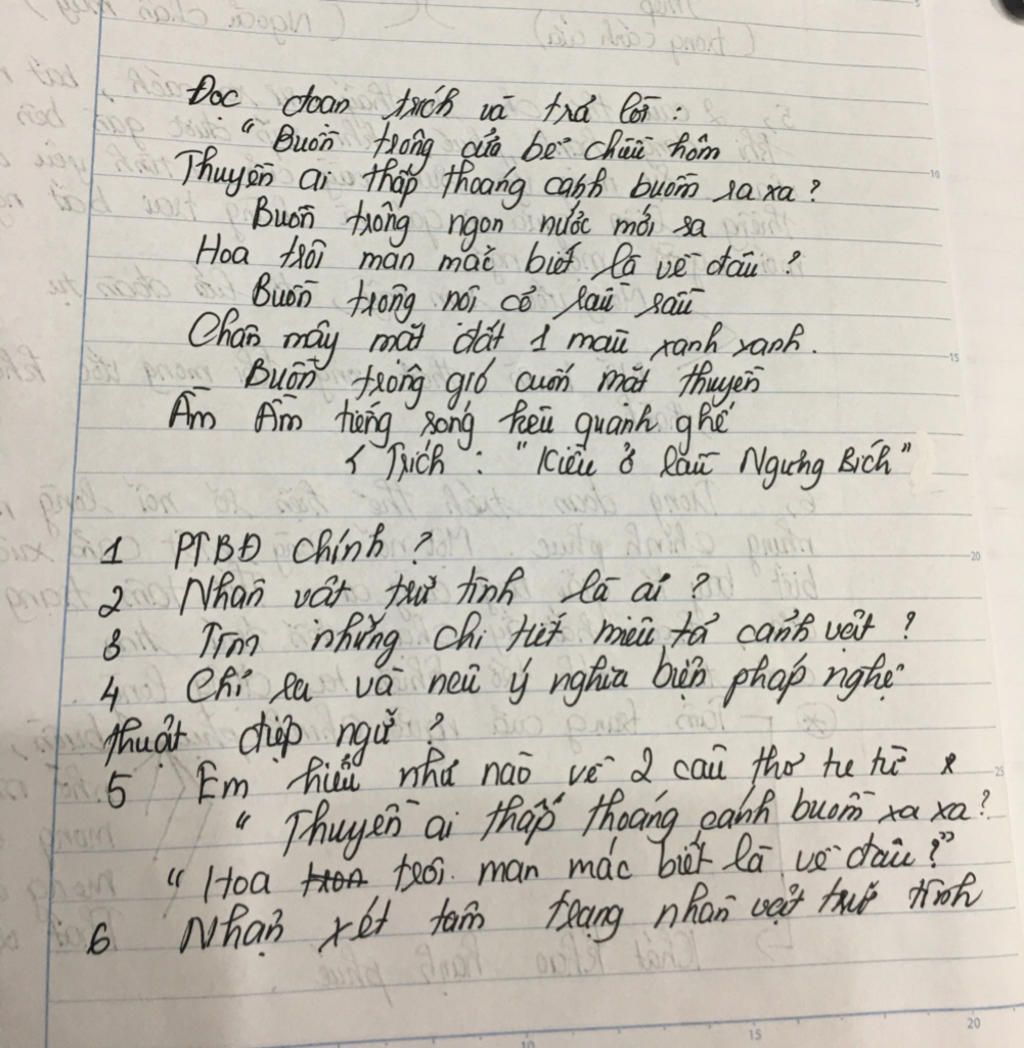 Đọc đoạn trích và trả lời :
" Buồn trông cửa bể chiều hôm
Thuyền ai thấp thoáng cánh buồm xa xa ?
Buồn trông ngọn nước mới sa
Hoa trôi man mác biết là về đâu ?
Buồn trông nội cỏ rầu rầu
Chân mây mặt đất 1 màu xanh xanh .
Buồn trông gió cuốn mặt thuyền
Ầm Ầm tiếng sóng kêu quanh ghế
( Trích : " Kiều ở lầu Ngưng Bích "
1 PTBĐ chính ?
2 Nhân vật trữ tình là ai ?
3 Tìm những chi tiết miêu tả cảnh vật ?
4 Chỉ ra và nêu ý nghĩa biện pháp nghệ
thuật điệp ngữ ?
5 Em hiểu như nào về 2 câu thơ tu từ
" Thuyền ai thấp thoáng cánh buồm xa xa ?
" Hoa trôi man mác biết là về đâu ? "
6 Nhận xét tâm trạng nhân vật trữ tình